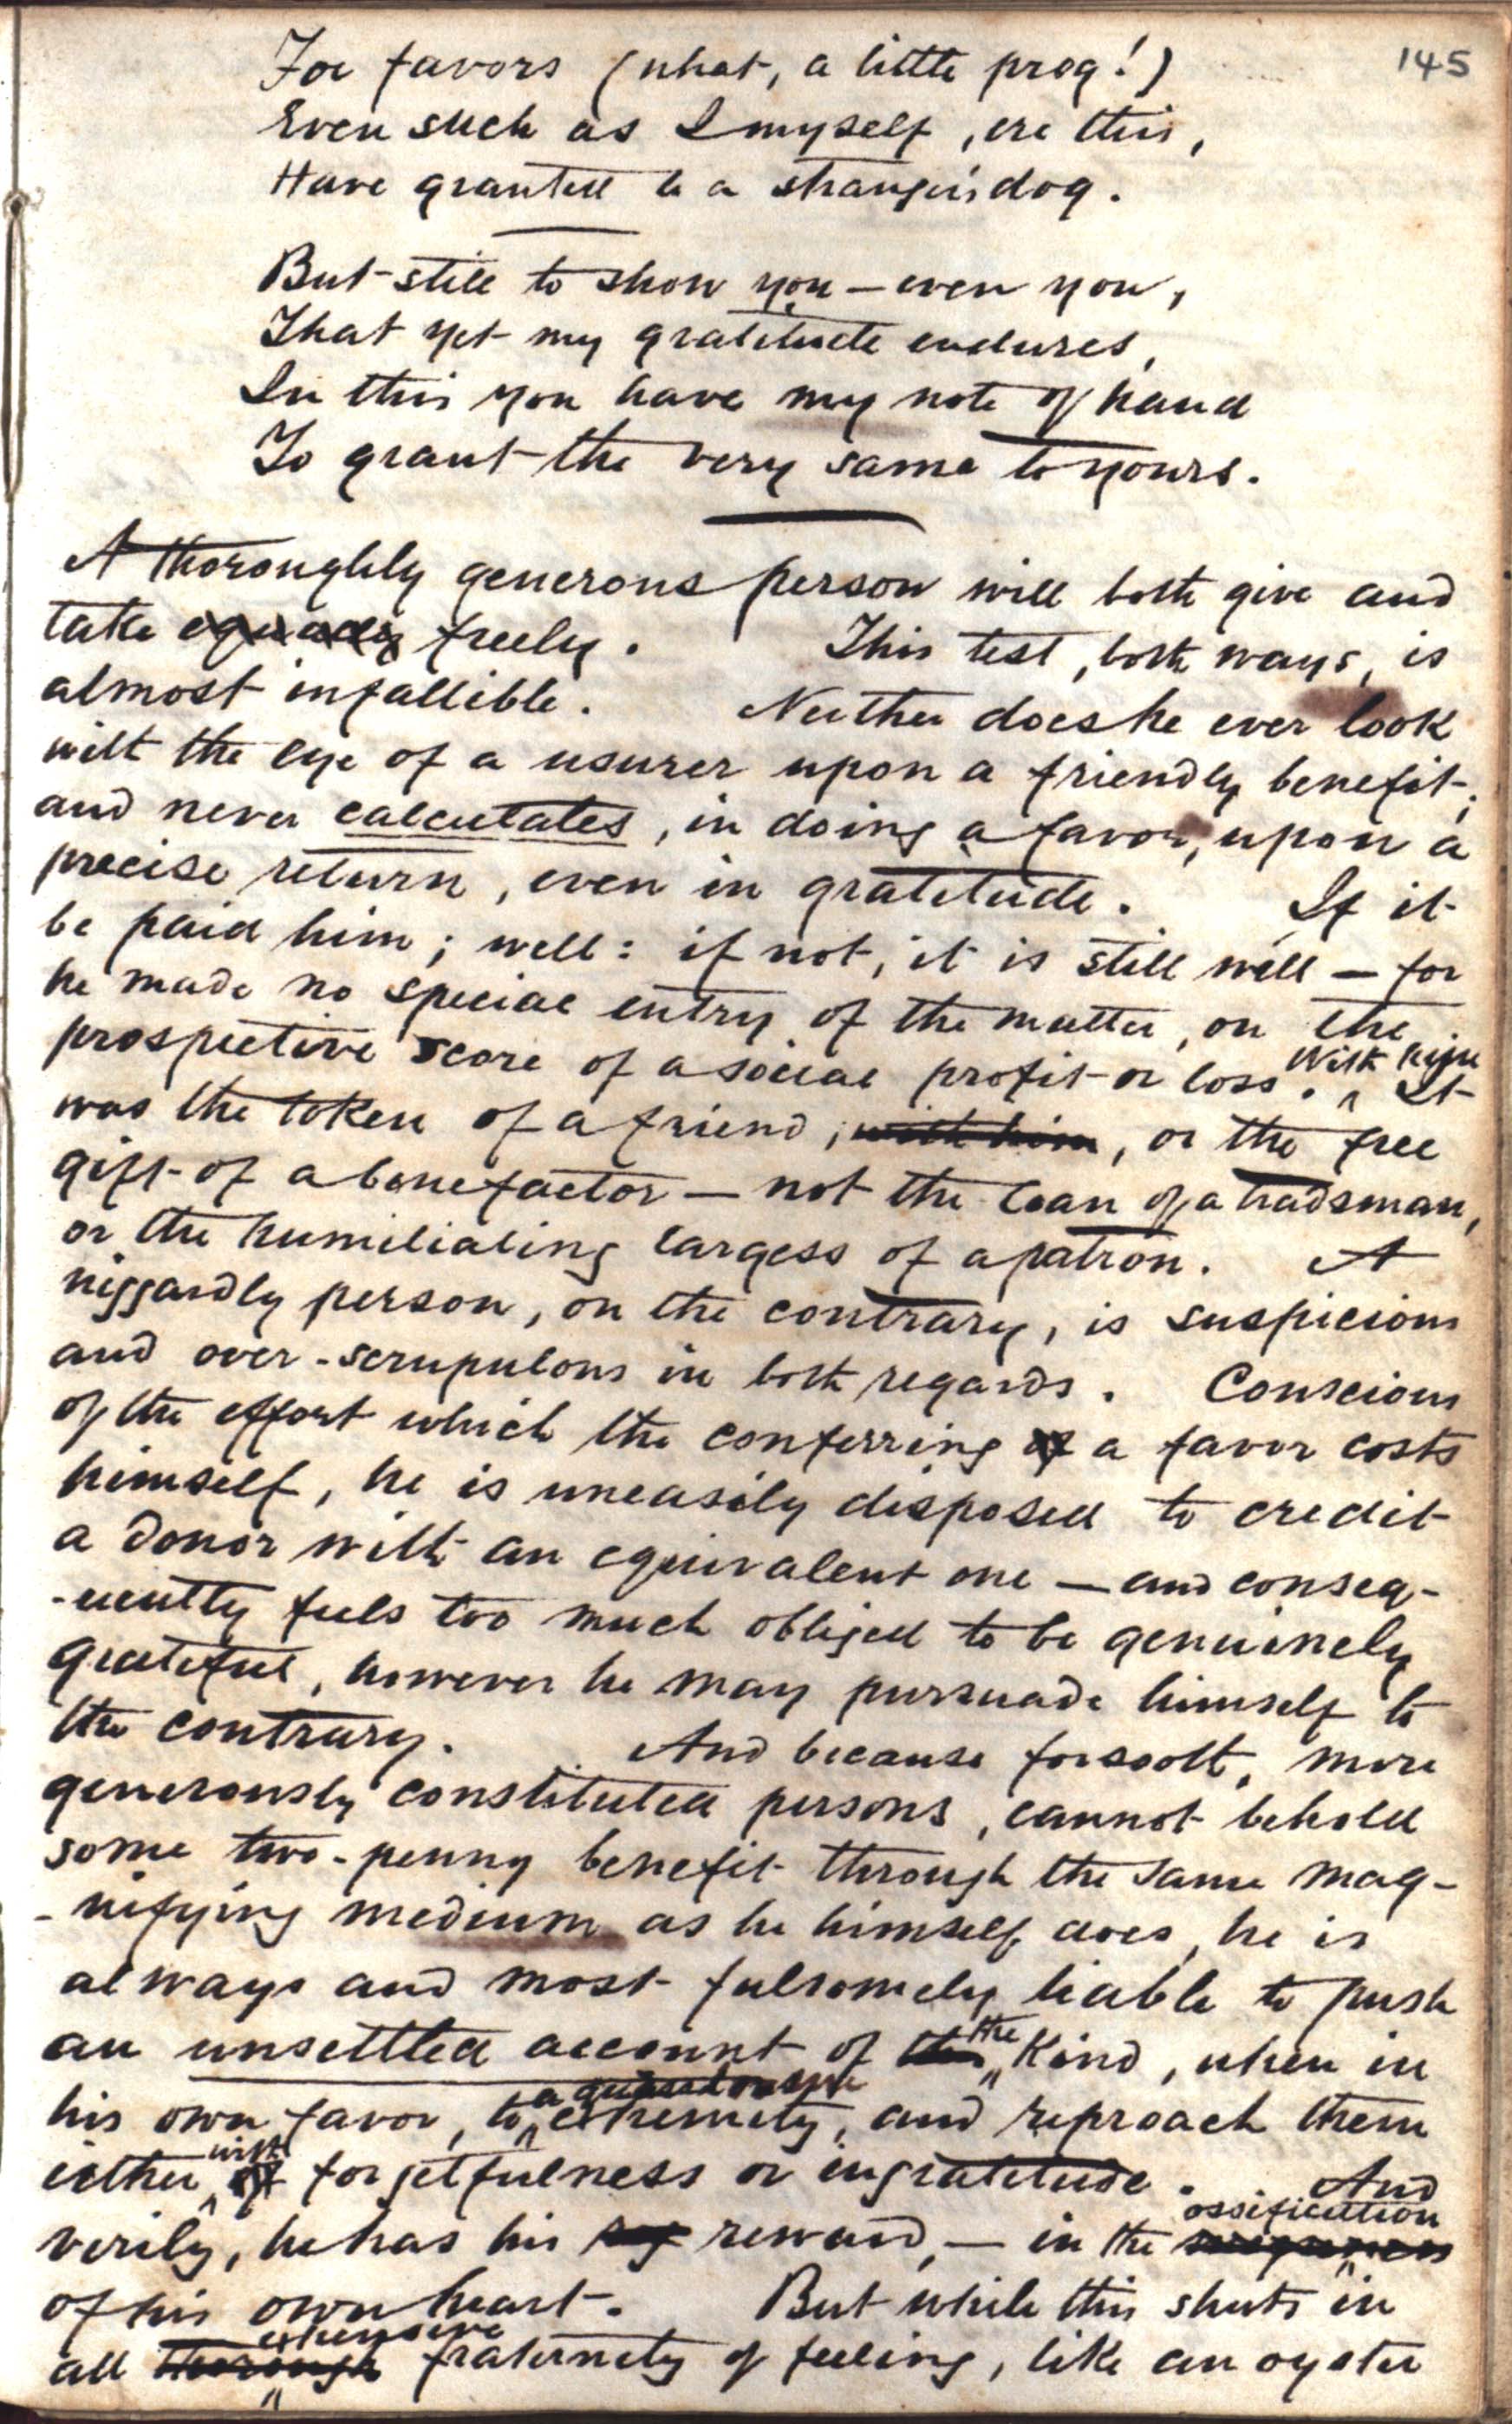 145
For favors (what, a little prog!)
Even such as I myself, ere this,
Have granted to a stranger's dog.
But still to show you — even you,
That yet my gratitude endures,
In this you have my note of hand
To grant the very same to yours.
A thoroughly generous person will both give and
take equally freely. This test, both ways, is
almost infallible. Neither does he ever look
with the eye of a usurer upon a friendly benefit;
and never calculates, in doing a favor, upon a
precise return, even in gratitude. If it
be paid him; well: if not, it is still well — for
he made no special entry of the matter, on the
prospective score of a social profit or loss. With him It
was the token of a friend, with him, or the free
gift of a benefactor — not the loan of a tradsman,
or the humiliating largess of a patron. A
niggardly person, on the contrary, is suspicious
and over-scrupulous in both regards. Conscious
of the effort which the conferring of a favor costs
himself, he is uneasily disposed to credit
a donor with an equivalent one — and conseq-
-uently feels too much obliged to be genuinely
grateful, however he may pursuade himself to
the contrary. And because forsooth, more
generously constituted persons, cannot behold
some two-penny benefit through the same mag-
-nifying medium as he himself does, he is
always and most fulsomely liable to push
an unsettled account of the Kind, when in
his own favor, to a extremity, and reproach them
either with of forgetfulness or ingratitude. And
verily, he has his reward, — in the ossification
of his own heart. But while this shuts in
all thorough extensive fraternity of feeling, like an oyster